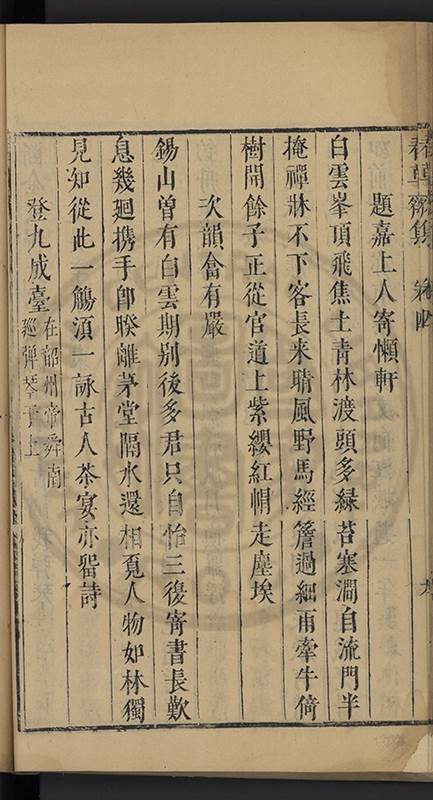 題嘉上人寄懶軒
白雲峯頂飛焦土青林渡頭多緑苔寒澗自流門半
掩禪牀不下客長来晴風野馬經簷過細雨牽牛倚
樹開餘子正從官道上紫纓紅㡌走塵埃
次韻會有嚴
錫山曽有白雲期别後多君只自怡三復寄書長歎
息幾廻携手即暌離茅堂隔水還相覓人物如林獨
見知從此一觴湏一詠古人茶宴亦留詩
登九成臺在韶州帝舜南
廵彈琴于上